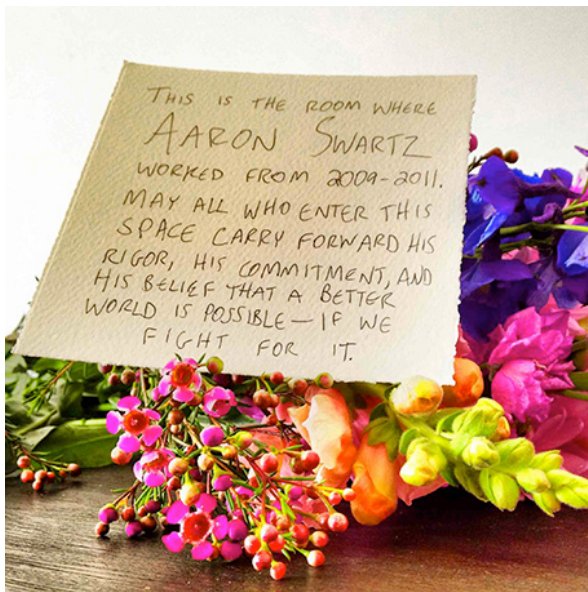 THIS IS THE ROOM WHERE
AARON SWARTZ
WORKED FROM 2009-2011.
MAY ALL WHO ENTER THIS
SPACE CARRY FORWARD HIS
RIGOR, HIS COMMITMENT, AND
HIS BELIEF THAT A BETTER
WORLD IS POSSIBLE — IF WE
FIGHT FOR IT.